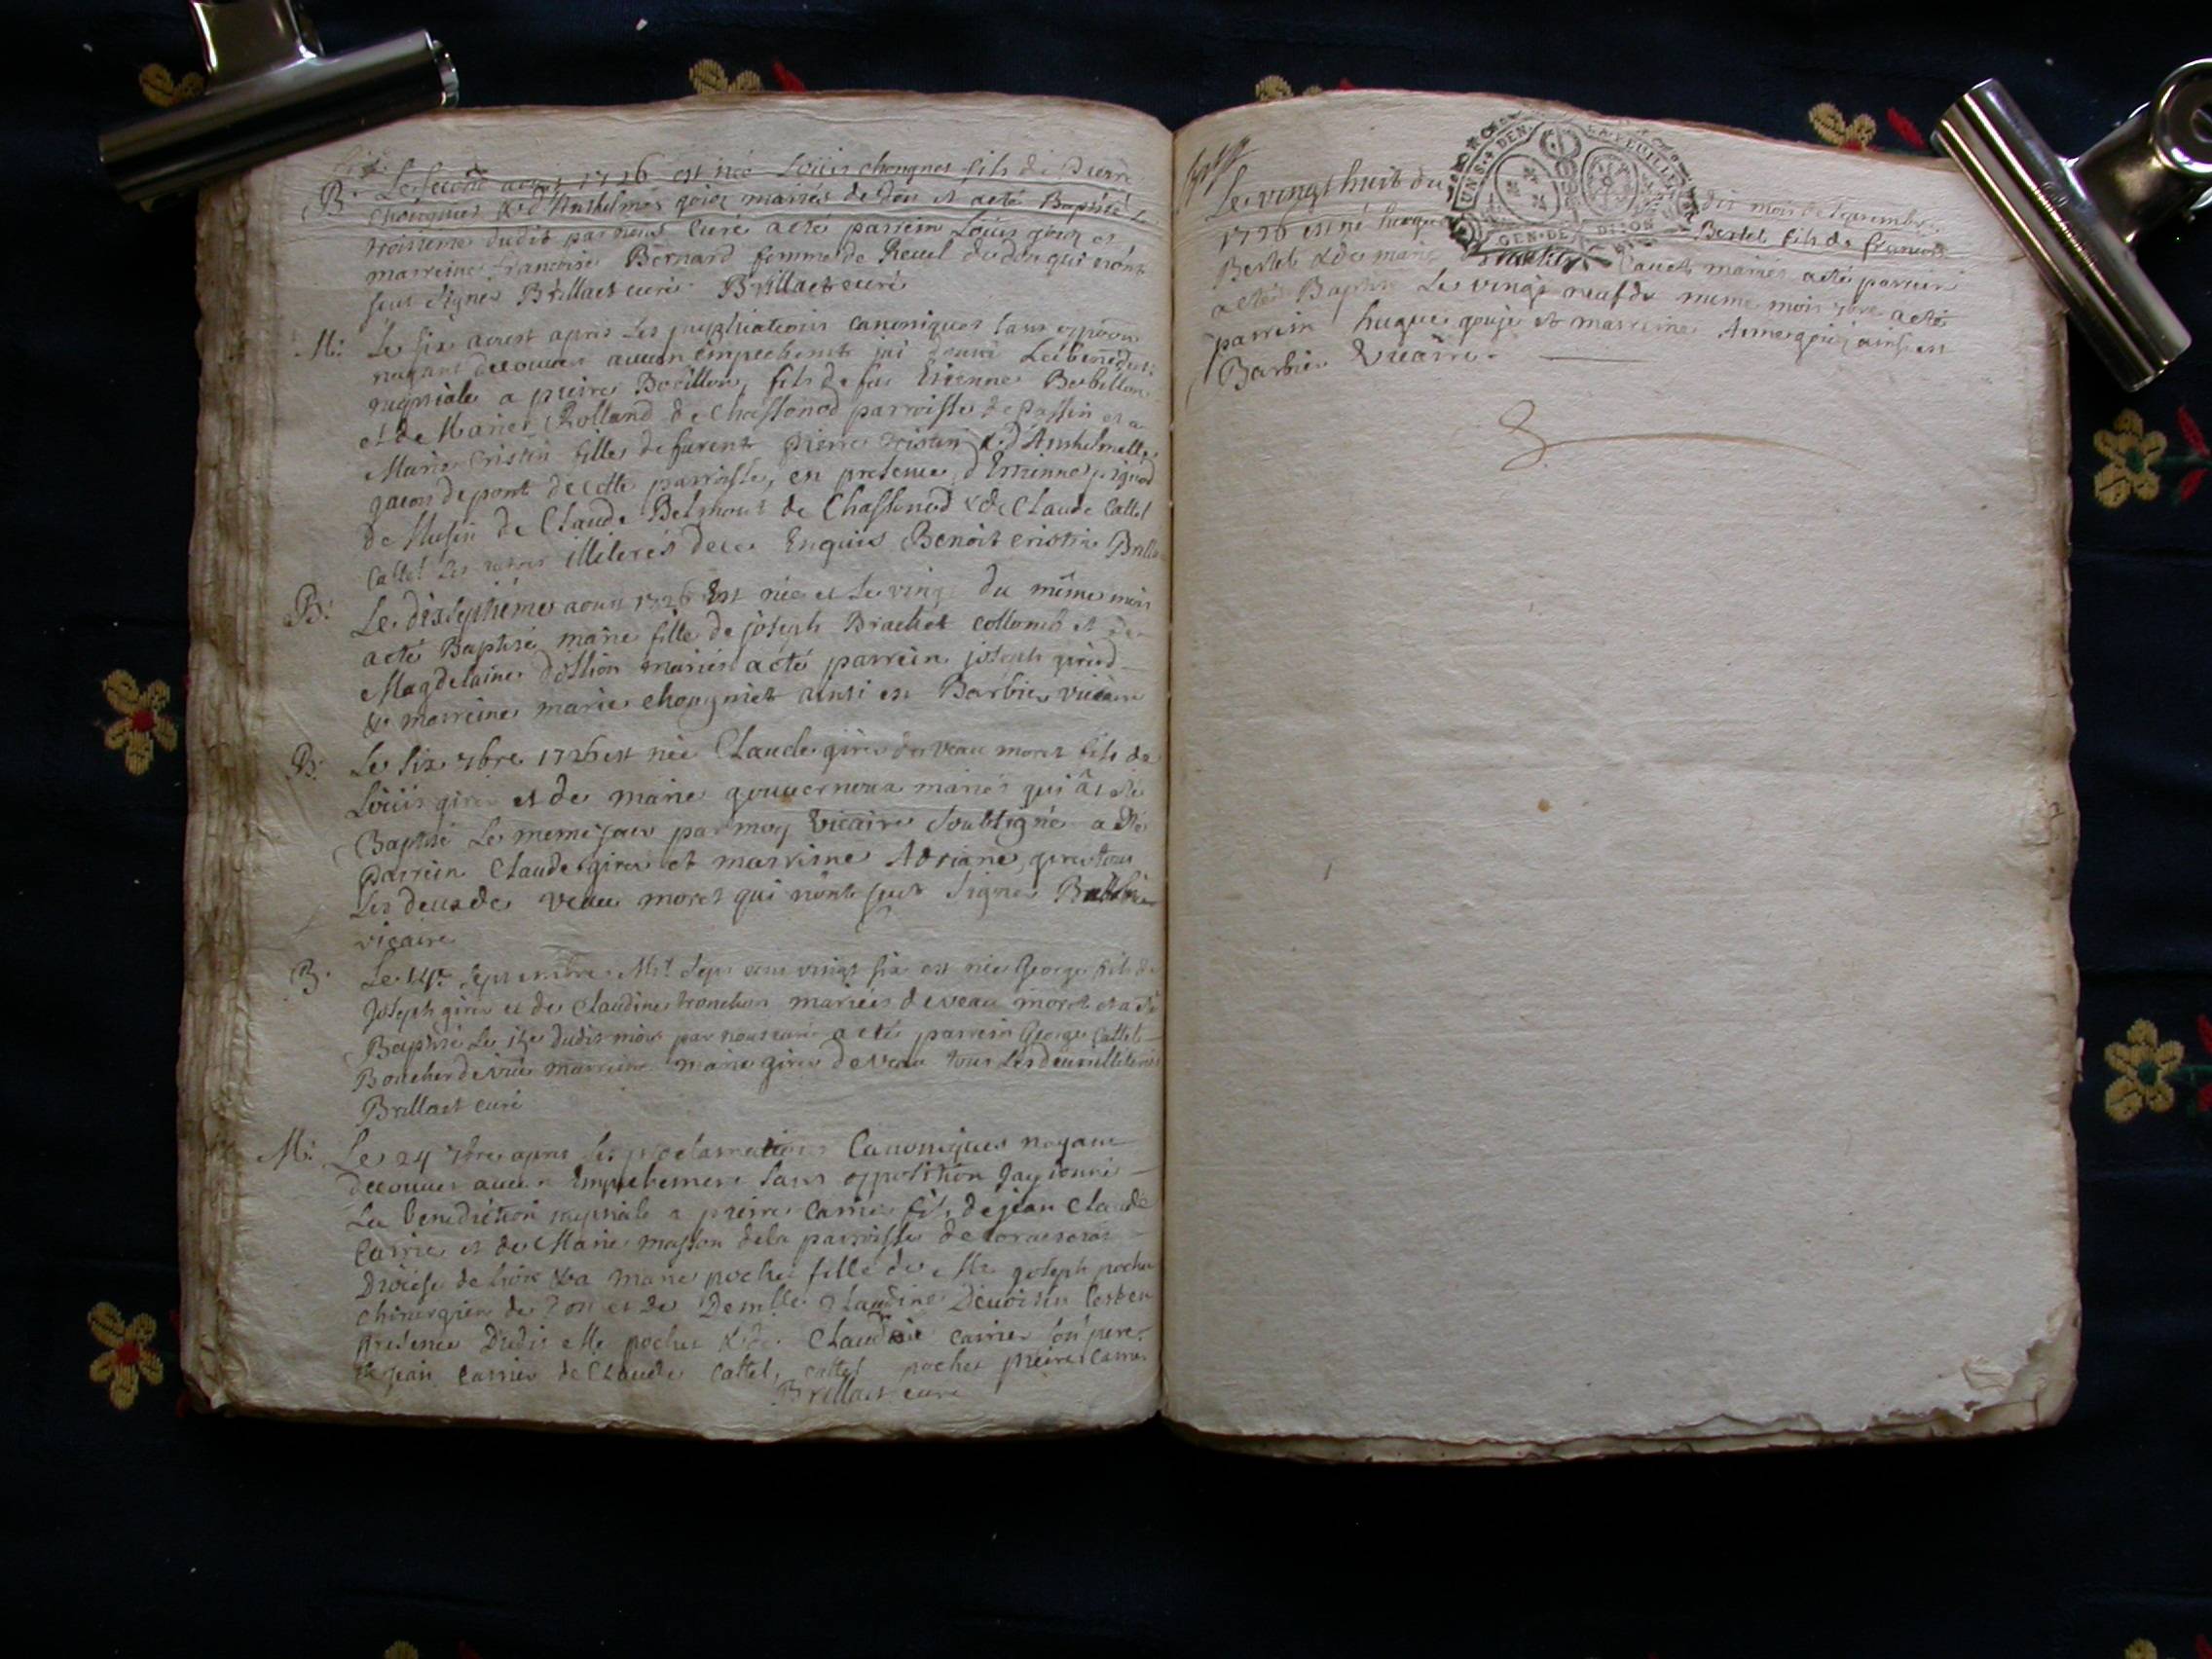 B. Le second aout 1726 est né Loüis chougnet fils de Pierre
chougnet & d'Anthelmes goiez mariés de Don et acté Baptisé Le
troisieme dudit par nous curé acté parrein Loüis goiez et
marreine francoise Bernard femme de Reuel de don qui n'ont
seut signes Brillact curé Brillact curé
M: Le six aoust apres Les publications canoniques sans opposition
nayant decouver aucun empechemt jai donné La benediction
nuptiale a pierre Bobillon, fils de feu Etienne Bobillon
et de Marie Rolland de Chassonod parroisse de Passin et a
Marie Cristin fille de furent pierre Cristin & d'Anthelmette
de pont de cette parroisse, en presence d'Etienne pignod
de Musin de Claude Belmont de Chassonod & de Claude Cattel
Cattel Les autres illiterés de ce Enquis Benoit cristin Brilla
B: Le dixseptieme aoust 1726 Est née et Le vingt du même mois
acté Baptisé marie fille de joseph Brachet collomb et de
Magdelaine dollion mariés acté parrein joseph
& marreine marie chougniet ainsi est Barbier vicaire
B: Le six 7bre 1726 est née Claude girer de veau moret fils de
Loüis girer et de marie gouuernoux mariés qui at été
Baptisé Le meme jour par moy vicaire soubsigné acté
parrein Claude girer et marreine Adriane girer tous
Les deux de veau moret qui nont seut signer Barbier
vicaire
B. Le 14e Septembre Mil sept cens vingt six est née George fils de
Joseph girer et de Claudine tronchon mariés de veau moret et a été
Baptisé Le 15e dudit mois par nous curé acté parrein George Cattel
Boucher de vieu marreine marie girer de veau tous Les deux illiterés
Brillact curé
M: Le 24 7bre apres Les proclamations Canoniques nayant
decouver aucun Empechement sans opposition Jay donné
La benediction nuptiale a pierre Carrier fils de jean Claude
Carrier et de Marie masson de la parroisse de
Diocese de & a marie pochet fille de Mr joseph pochet
chirurgien de Don et de Demlle Claudine Deuoisin Cest en
presence Dudit Mr pochet & de Claude carrier son pere
& jean Carrier de Claude Cattel, cattel pochet pierre Carrier
Brillact curé
UN S. 4 DEN. LA FEUILLE
GEN. DE DIJON
Le vingt huit du dit mois de Septembre
1726 est né hugue Bertet fils de francois
Bertet & de marie Cauet mariés acté parrein
acté Baptisé Le vingt neuf du meme mois 7bre acté
parrein hugue gouje et marreine Anne goiez ainsi est
Barbier Vicaire.